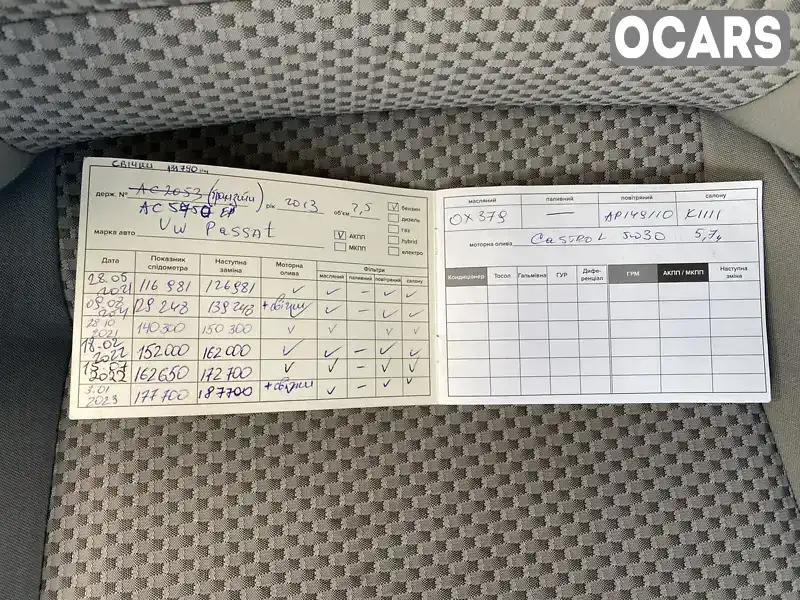 OCARS
СВІЧКИ
держ. № АС 2053 (транзити) рік 2013 об'єм 2,5
АС
марка авто VW Passat
бензин
дизель
газ
hybrid
електро
АКПП
МКПП
Дата Показник спідометра Наступна заміна Моторна олива Фільтри
масляний паливний повітряний салону
28.05 2021 116 981 126981 ✓ ✓ – ✓ ✓
129 248 139 248 + свічки ✓ – ✓ ✓
28.10 2021 140 300 150 300 ✓ ✓ – ✓ ✓
18.02 2022 152000 162 000 ✓ ✓ – ✓ ✓
15.07 2022 162650 172 700 ✓ ✓ – ✓ ✓
3.01 2023 177 700 187700 + свічки ✓ – ✓ ✓
масляний паливний повітряний салону
OX 379 — AP149/10 K1111
моторна олива Castrol 5w30 5,7л
Кондиціонер Тосол Гальмівна ГУР Дифе-ренціал ГРМ АКПП / МКПП Наступна заміна